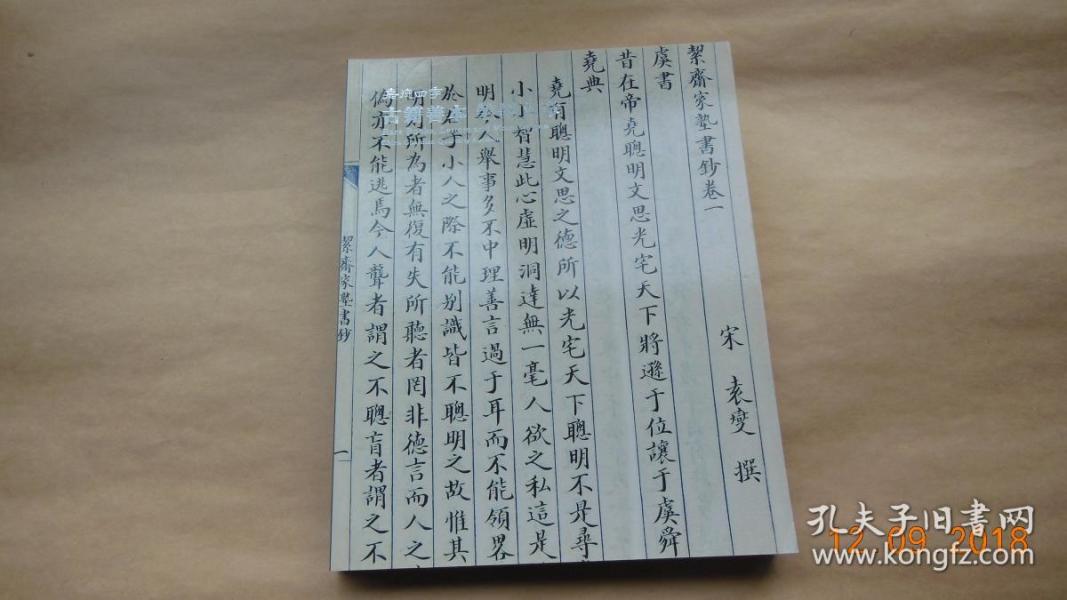 絜齋家塾書鈔卷一
宋 袁燮 撰
虞書
昔在帝堯聰明文思光宅天下將遜于位讓于虞舜
堯典
堯有聰明文思之德所以光宅天下聰明不是尋
小小智慧此心虛明洞達無一毫人欲之私這是
明今人舉事多不中理善言過于耳而不能領畧
於君子小人之際不能别識皆不聰明之故惟其
明則所為者無復有失所聽者罔非德言而人之
偽亦不能逃焉今人聾者謂之不聰盲者謂之不
絜齋家塾書鈔
一
嘉德四季
古籍善本
孔夫子旧书网
www.kongfz.com
12 09 2018